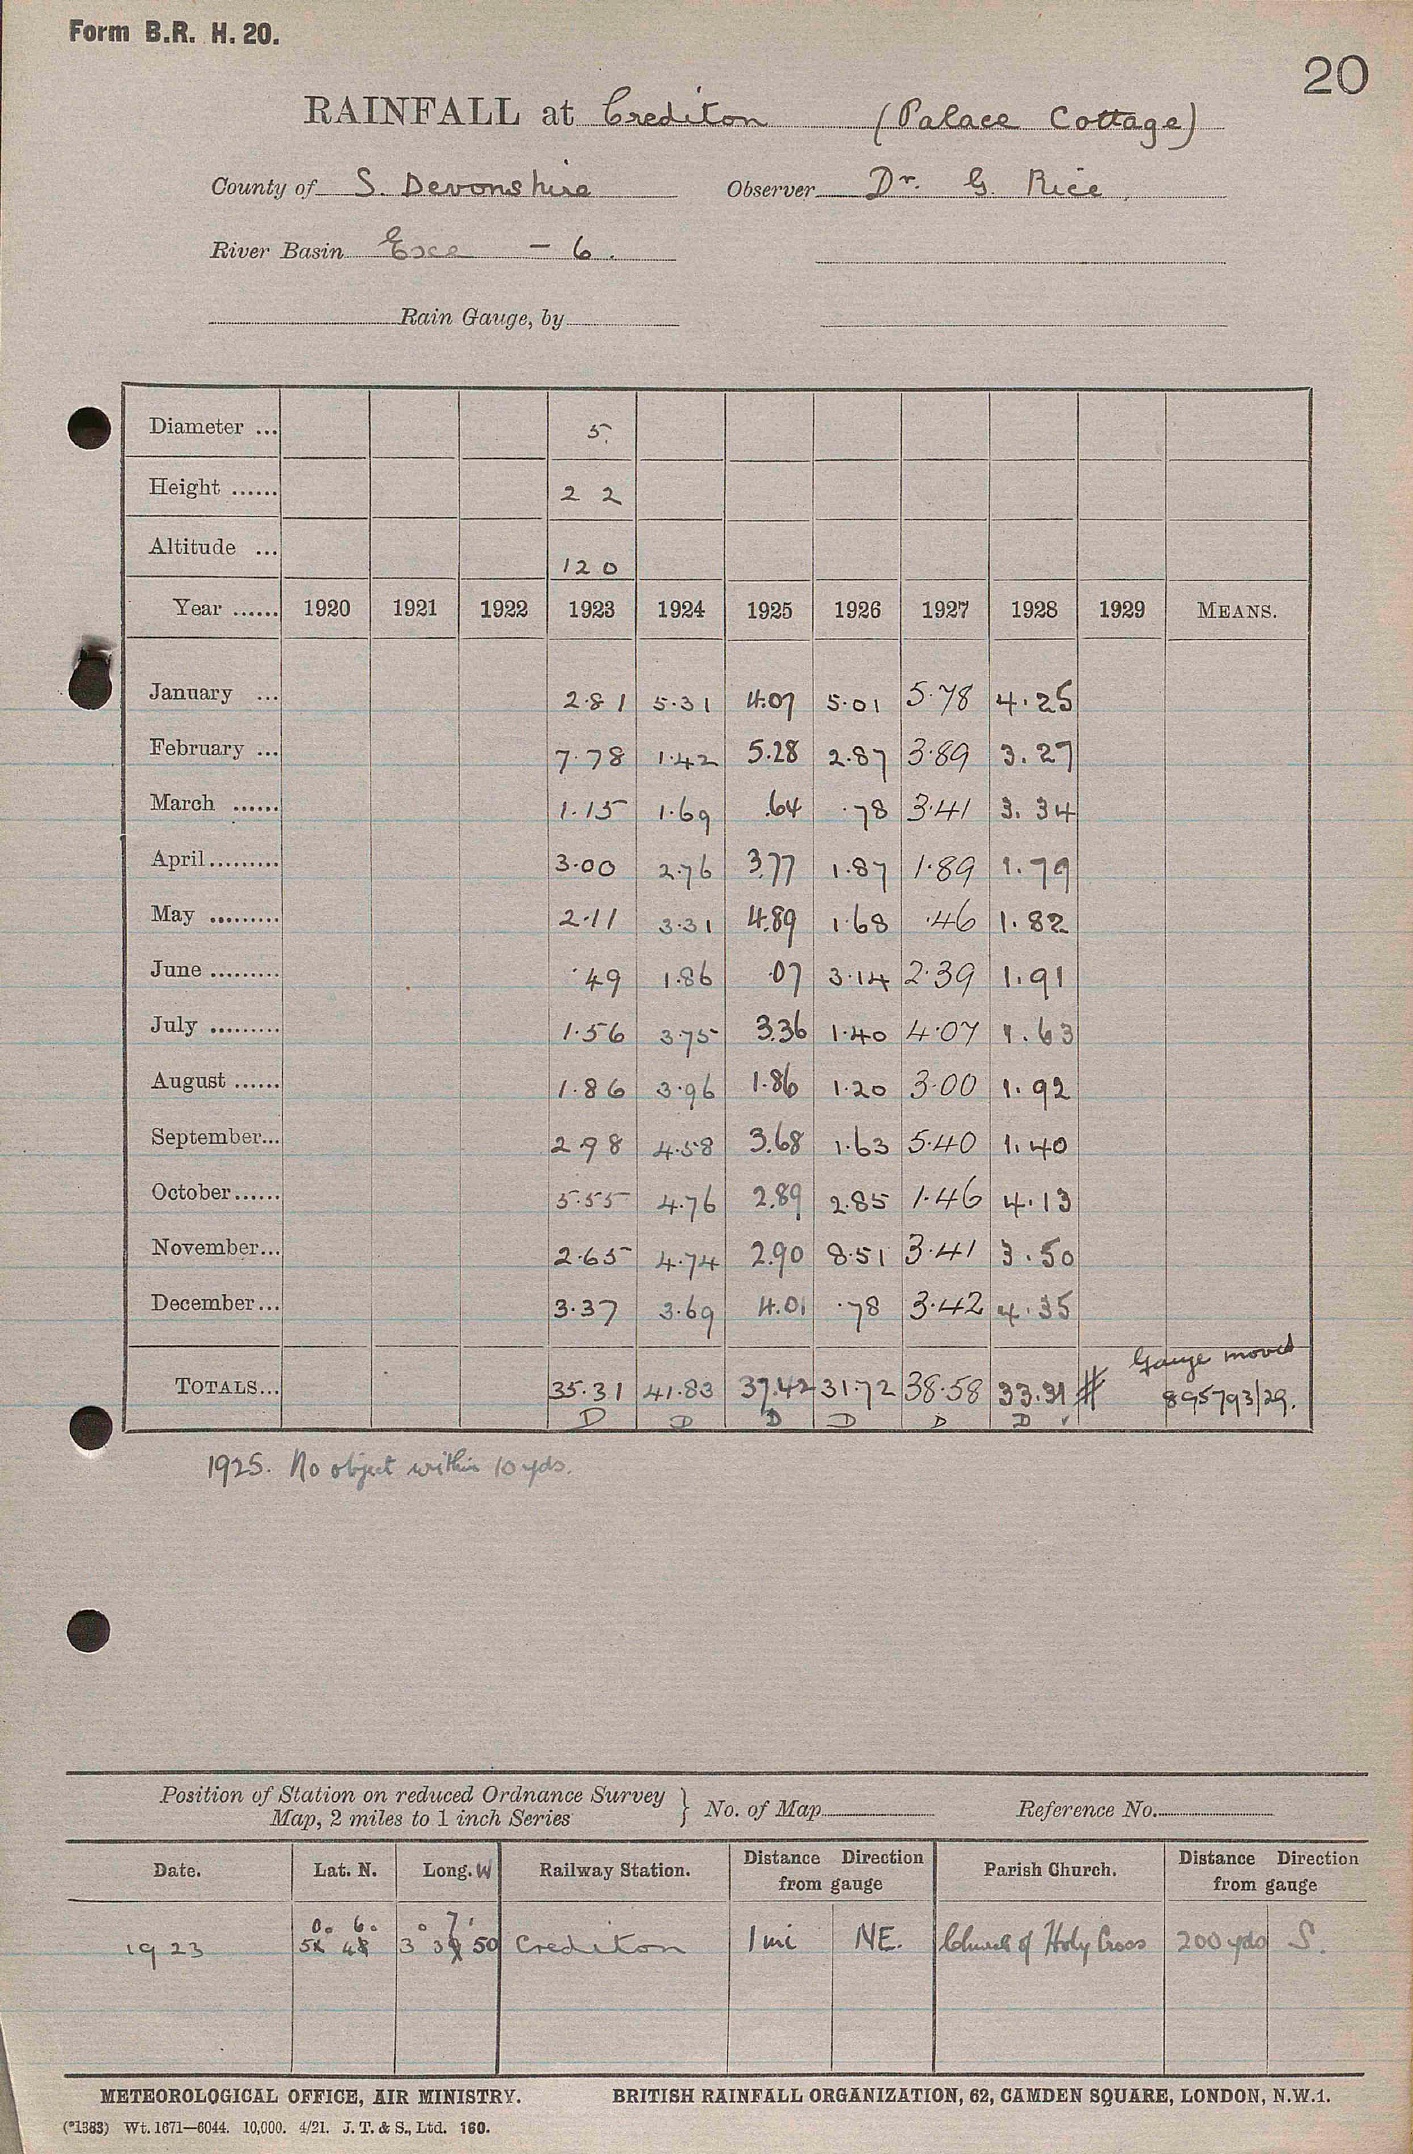 Form B.R. H. 20.
20
RAINFALL at Crediton (Palace Cottage)
County of S. Devonshire Observer Dr. G. Rice
River Basin Exe - 6.
Rain Gauge, by
Diameter ... 5.
Height ...... 2 2
Altitude ... 120
Year ...... 1920 1921 1922 1923 1924 1925 1926 1927 1928 1929 MEANS.
January ... 2.81 5.31 4.07 5.01 5.78 4.25
February ... 7.78 1.42 5.28 2.87 3.89 3.27
March ...... 1.15 1.69 .64 .78 3.41 3.34
April......... 3.00 2.76 3.77 1.87 1.89 1.79
May ......... 2.11 3.31 4.89 1.68 .46 1.82
June ......... .49 1.86 .07 3.14 2.39 1.91
July ......... 1.56 3.75 3.36 1.40 4.07 1.63
August ...... 1.86 3.96 1.86 1.20 3.00 1.92
September... 2.98 4.58 3.68 1.63 5.40 1.40
October...... 5.55 4.76 2.89 2.85 1.46 4.13
November... 2.65 4.74 2.90 8.51 3.41 3.50
December... 3.37 3.69 4.01 .78 3.42 4.35
Gauge moved
TOTALS... 35.31 41.83 37.42 31.72 38.58 33.31 # 895793/29.
D D D D D D ✓
1925. No object within 10 yds.
Position of Station on reduced Ordnance Survey
Map, 2 miles to 1 inch Series } No. of Map Reference No.
Date. Lat. N. Long. W Railway Station. Distance Direction from gauge Parish Church. Distance Direction from gauge
0. 6. ° 7 '
1923 48 3 50 Crediton 1 mi NE. Church of Holy Cross 200 yds S.
METEOROLOGICAL OFFICE, AIR MINISTRY. BRITISH RAINFALL ORGANIZATION, 62, CAMDEN SQUARE, LONDON, N.W.1.
(*1383) Wt. 1671—6044. 10,000. 4/21. J. T. & S., Ltd. 160.